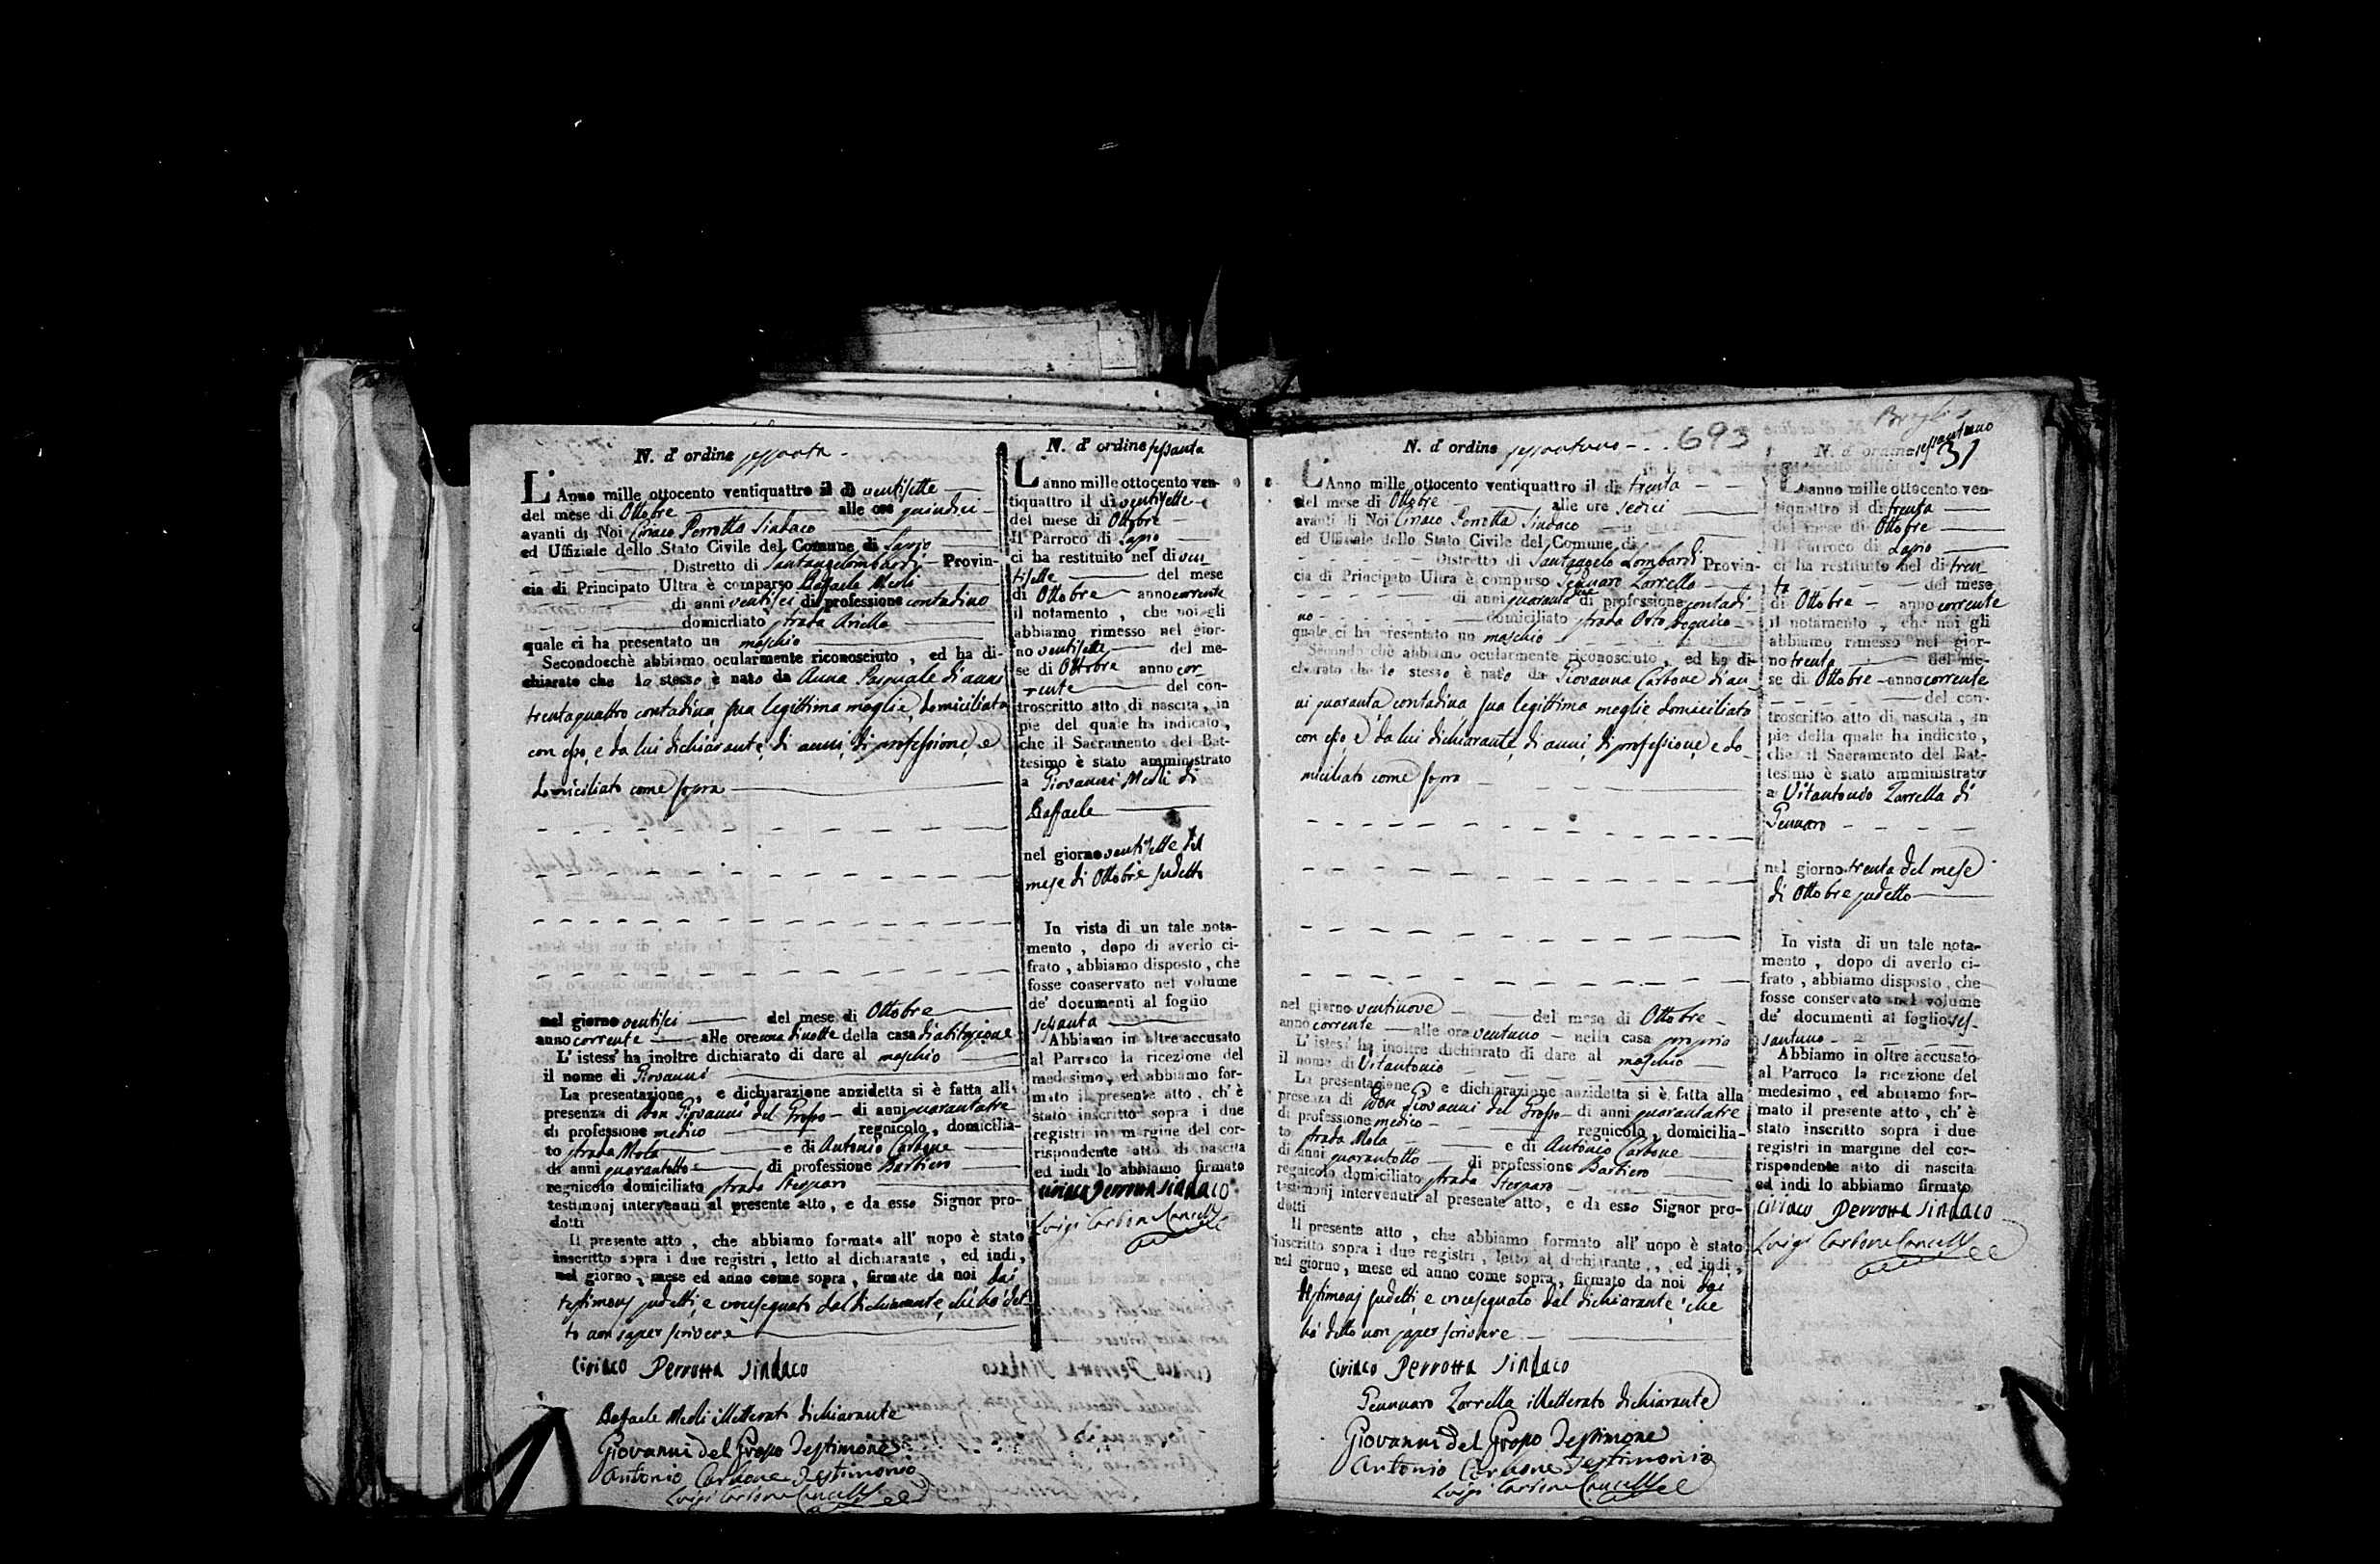 N. d' ordine sessanta
L' Anno mille ottocento ventiquattro il dì ventisette
del mese di Ottobre alle ore quindici
avanti di Noi Ciriaco Perrotta Sindaco
ed Uffiziale dello Stato Civile del Comune di Lapio
Distretto di Santangelo Lombardi Provin-
cia di Principato Ultra è comparso Raffaele Meoli
di anni ventisei di professione contadino
domiciliato strada Ariella
quale ci ha presentato un maschio
Secondocchè abbiamo ocularmente riconosciuto , ed ha di-
chiarato che lo stesso è nato da Anna Pasquale di anni
trentaquattro contadina, sua legittima moglie, domiciliata
con esso, e da lui dichiarante, di anni, di professione, e
domiciliato come sopra
nel giorno ventisei del mese di Ottobre
anno corrente alle ore una di notte della casa di abitazione
L' istess' ha inoltre dichiarato di dare al maschio
il nome di Giovanni
La presentazione , e dichiarazione anzidetta si è fatta alla
presenza di Don Giovanni del Grosso di anni quarantatre
di professione medico regnicolo, domicilia-
to strada Mola e di Antonio Carbone
di anni quarantotto di professione Barbiero
regnicolo domiciliato strada
testimonj intervenuti al presente atto, e da esso Signor pro-
dotti
Il presente atto , che abbiamo formato all' uopo è stato
inscritto sopra i due registri , letto al dichiarante , ed indi,
nel giorno, mese ed anno come sopra , firmato da noi dai
testimonj sudetti, e crocesegnato dal dichiarante, che hà det-
to non saper scrivere
Ciriaco Perrotta Sindaco
Raffaele Meoli illetterato dichiarante
Giovanni del Grosso Testimone
Antonio Carbone Testimonio
Luigi Carbone Cancell
N. d' ordine sessanta
L' anno mille ottocento ven-
tiquattro il dì ventisette
del mese di Ottobre
Il Parroco di Lapio
ci ha restituito nel dì ven-
tisette del mese
di Ottobre anno corrente
il notamento , che noi gli
abbiamo rimesso nel gior-
no ventisette del me-
se di Ottobre anno cor-
rente del con-
troscritto atto di nascita, in
piè del quale ha indicato,
che il Sacramento del Bat-
tesimo è stato amministrato
a Giovanni Meoli di
Raffaele
nel giorno ventisette del
mese di Ottobre sudetto
In vista di un tale nota-
mento , dopo di averlo ci-
frato , abbiamo disposto , che
fosse conservato nel volume
de' documenti al foglio
sessanta
Abbiamo in oltre accusato
al Parroco la ricezione del
medesimo, ed abbiamo for-
mato il presente atto , ch' è
stato inscritto sopra i due
registri in margine del cor-
rispondente atto di nascita
ed indi lo abbiamo firmato
Ciriaco Perrotta Sindaco
Luigi Carbone Cancell
N. d' ordine sessantuno 693
L' Anno mille ottocento ventiquattro il dì trenta
del mese di Ottobre alle ore sedici
avanti di Noi Ciriaco Perrotta Sindaco
ed Uffiziale dello Stato Civile del Comune di
Distretto di Santangelo Lombardi Provin-
cia di Principato Ultra è comparso Gennaro Zarrella
di anni quaranta di professione contadi-
no domiciliato strada Orto
quale ci ha presentato un maschio
Secondo chè abbiamo ocularmente riconosciuto , ed ha di-
chiarato che lo stesso è nato da Giovanna Carbone di an-
ni quaranta, contadina sua legittima moglie domiciliata
con esso, e da lui dichiarante, di anni, di professione, e do-
miciliato come sopra
nel giorno ventinove del mese di Ottobre
anno corrente alle ore ventuno nella casa propria
L' istess' ha inoltre dichiarato di dare al maschio
il nome di Vitantonio
La presentazione , e dichiarazione anzidetta si è fatta alla
presenza di Don Giovanni del Grosso di anni quarantatre
di professione medico regnicolo, domicilia-
to strada Mola e di Antonio Carbone
di anni quarantotto di professione Barbiero
regnicolo domiciliato strada
testimonj intervenuti al presente atto, e da esso Signor pro-
dotti
Il presente atto , che abbiamo formato all' uopo è stato
inscritto sopra i due registri , letto al dichiarante , ed indi ,
nel giorno, mese ed anno come sopra, firmato da noi dai
testimonj sudetti, e crocesegnato dal dichiarante, che
hà detto non saper scrivere
Ciriaco Perrotta Sindaco
Gennaro Zarrella illetterato dichiarante
Giovanni del Grosso Testimone
Antonio Carbone Testimonio
Luigi Carbone Cancell
N. d' ordine sessantuno
31
L' anno mille ottocento ven-
tiquattro il dì trenta
del mese di Ottobre
Il Parroco di Lapio
ci ha restituito nel dì tren-
ta del mese
di Ottobre anno corrente
il notamento , che noi gli
abbiamo rimesso nel gior-
no trenta del me-
se di Ottobre anno corrente
del con-
troscritto atto di nascita, in
piè della quale ha indicato,
che il Sacramento del Bat-
tesimo è stato amministrato
a Vitantonio Zarrella di
Gennaro
nel giorno trenta del mese
di Ottobre sudetto
In vista di un tale nota-
mento , dopo di averlo ci-
frato , abbiamo disposto , che
fosse conservato nel volume
de' documenti al foglio ses-
santuno
Abbiamo in oltre accusato
al Parroco la ricezione del
medesimo , ed abbiamo for-
mato il presente atto , ch' è
stato inscritto sopra i due
registri in margine del cor-
rispondente atto di nascita
ed indi lo abbiamo firmato
Ciriaco Perrotta Sindaco
Luigi Carbone Cancell